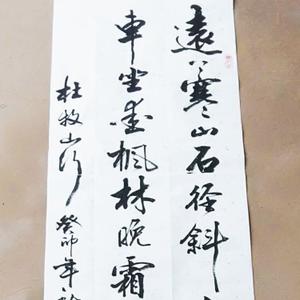 遠上寒山石径斜
車坐愛楓林晚霜
杜牧山行 癸卯年